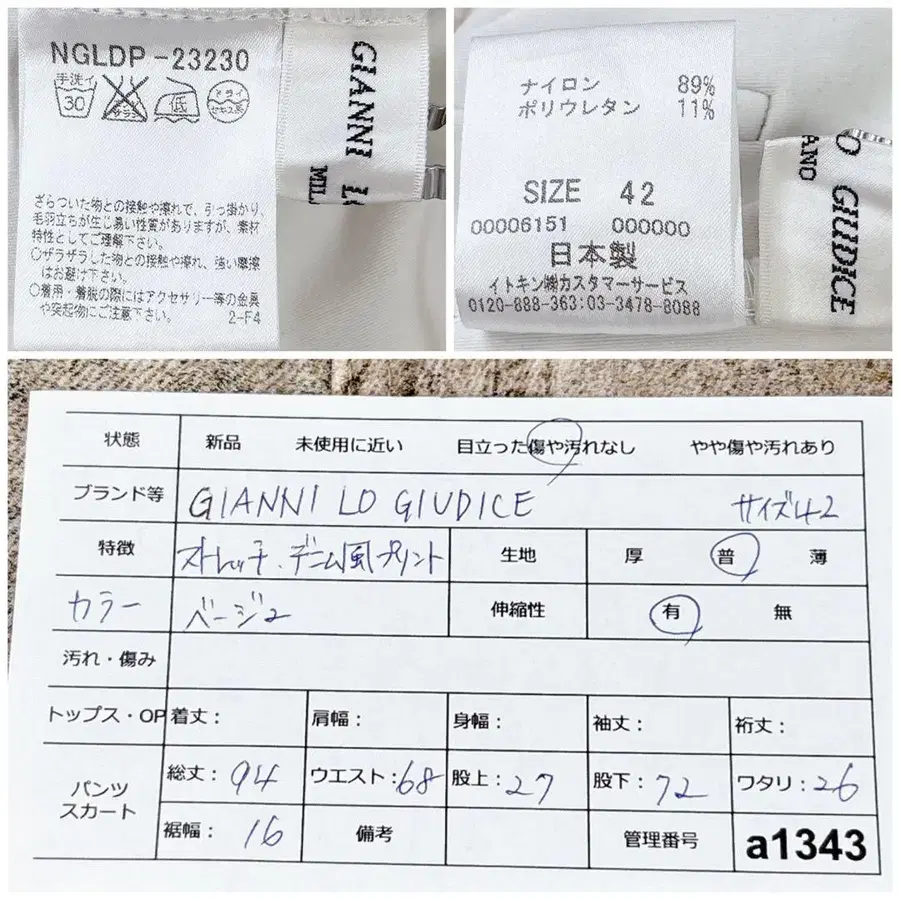 NGLDP-23230
手洗イ
30
サラシ
低
ドライ
セキユ系
ざらついた物との接触や擦れで、引っ掛かり、
毛羽立ちが生じ易い性質がありますが、素材
特性としてご理解下さい。
○ザラザラした物との接触や擦れ、強い摩擦
はお避け下さい。
○着用・着脱の際にはアクセサリー等の金具
や突起物にご注意下さい。
2-F4
GIANNI LO
MILA
ナイロン 89%
ポリウレタン 11%
SIZE 42
00006151 000000
日本製
イトキン㈱カスタマーサービス
0120-888-363:03-3478-8088
O GIUDICE
ANO
状態 新品 未使用に近い 目立った傷や汚れなし やや傷や汚れあり
ブランド等 GIANNI LO GIUDICE サイズ42
特徴 ストレッチ、デニム風プリント 生地 厚 普 薄
カラー ベージュ 伸縮性 有 無
汚れ・傷み
トップス・OP 着丈: 肩幅: 身幅: 袖丈: 裄丈:
パンツ
スカート
総丈:94 ウエスト:68 股上:27 股下:72 ワタリ:26
裾幅:16 備考 管理番号 a1343